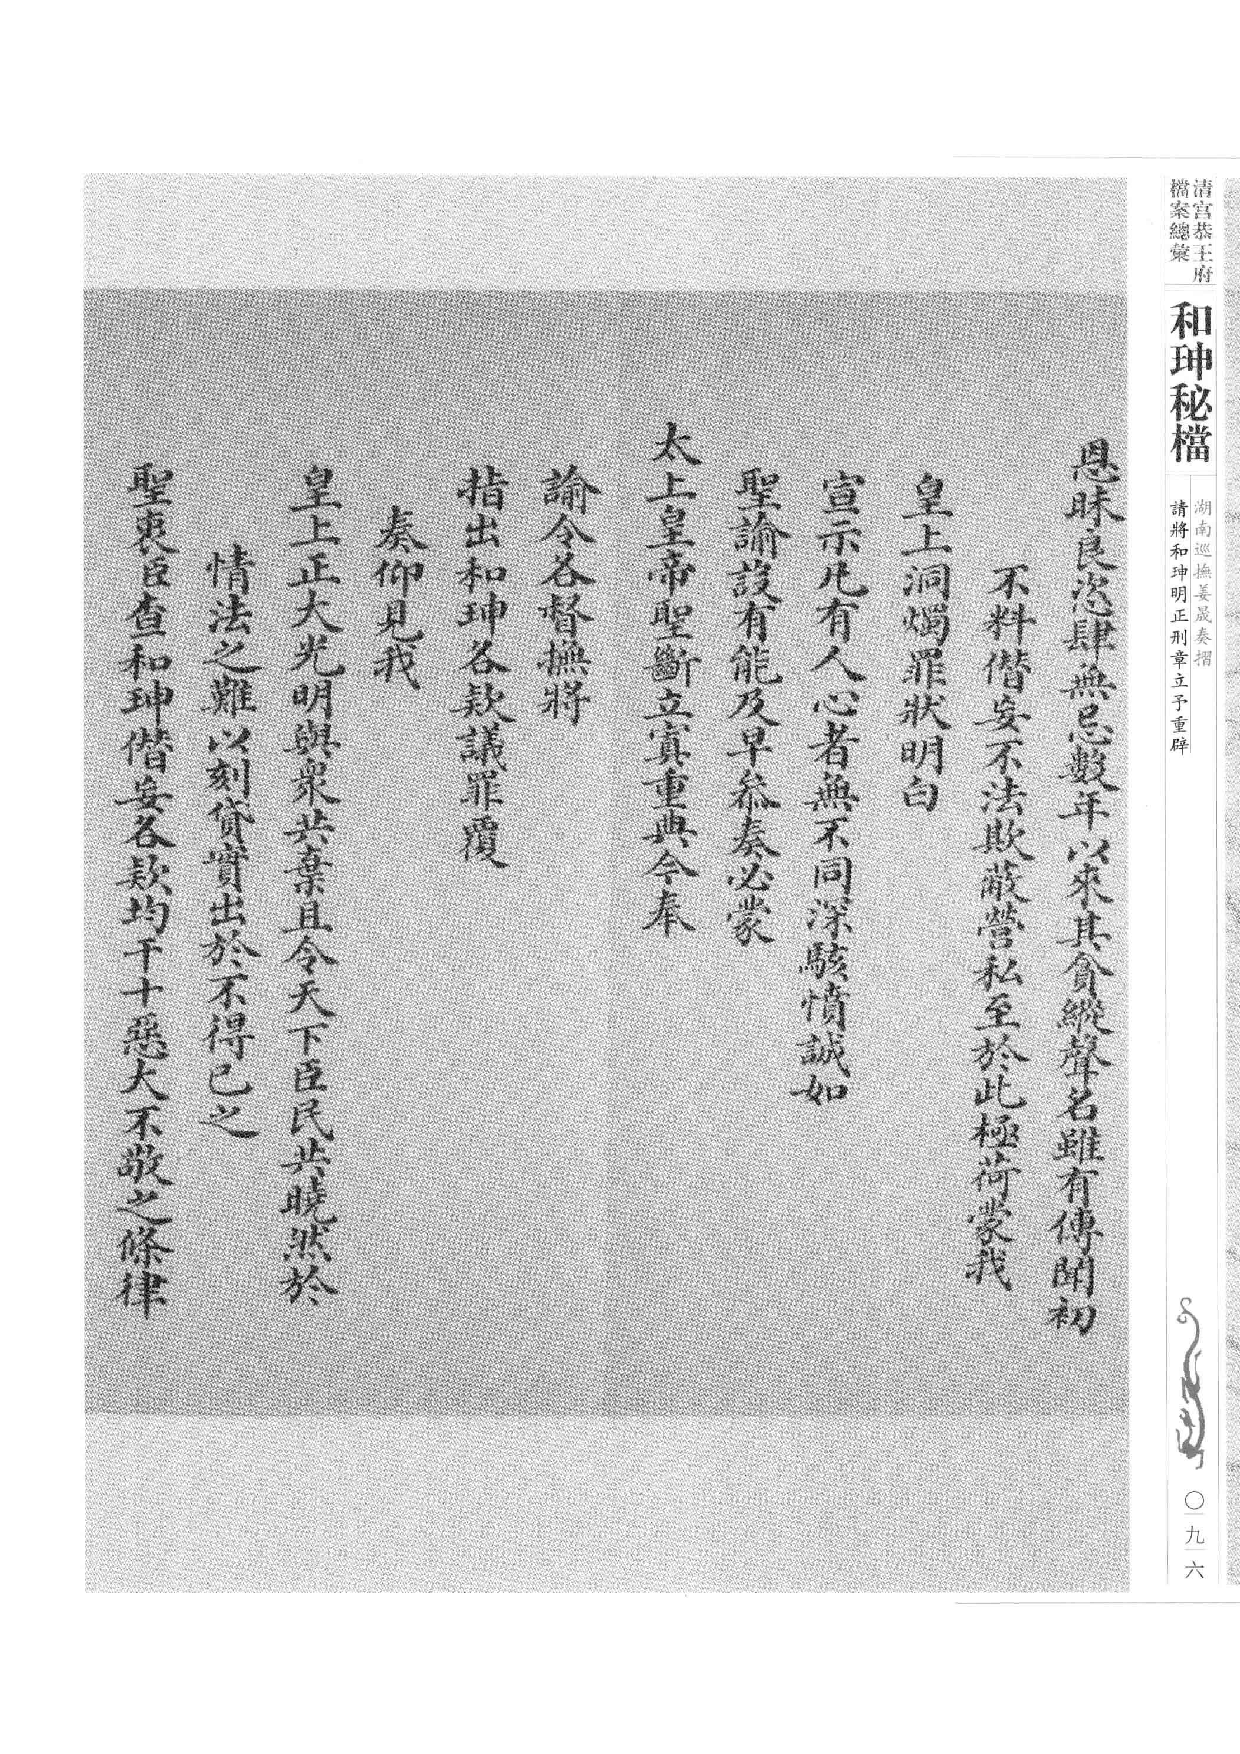 清宮恭王府
檔案總彙
和珅秘檔
湖南巡撫姜晟奏摺
請將和珅明正刑章立予重辟
〇九六
恩昧良恣肆無忌數年以來其貪縱聲名雖有傳聞初
不料僭妄不法欺蔽營私至於此極荷蒙我
皇上洞燭罪狀明白
宣示凡有人心者無不同深駭憤誠如
聖諭設有能及早叅奏必蒙
太上皇帝聖斷立寘重典今奉
諭令各督撫將
指出和珅各款議罪覆
奏仰見我
皇上正大光明與衆共棄且令天下臣民共曉然於
情法之難以刻貸實出於不得已之
聖衷臣查和珅僭妄各款均干十惡大不敬之條律